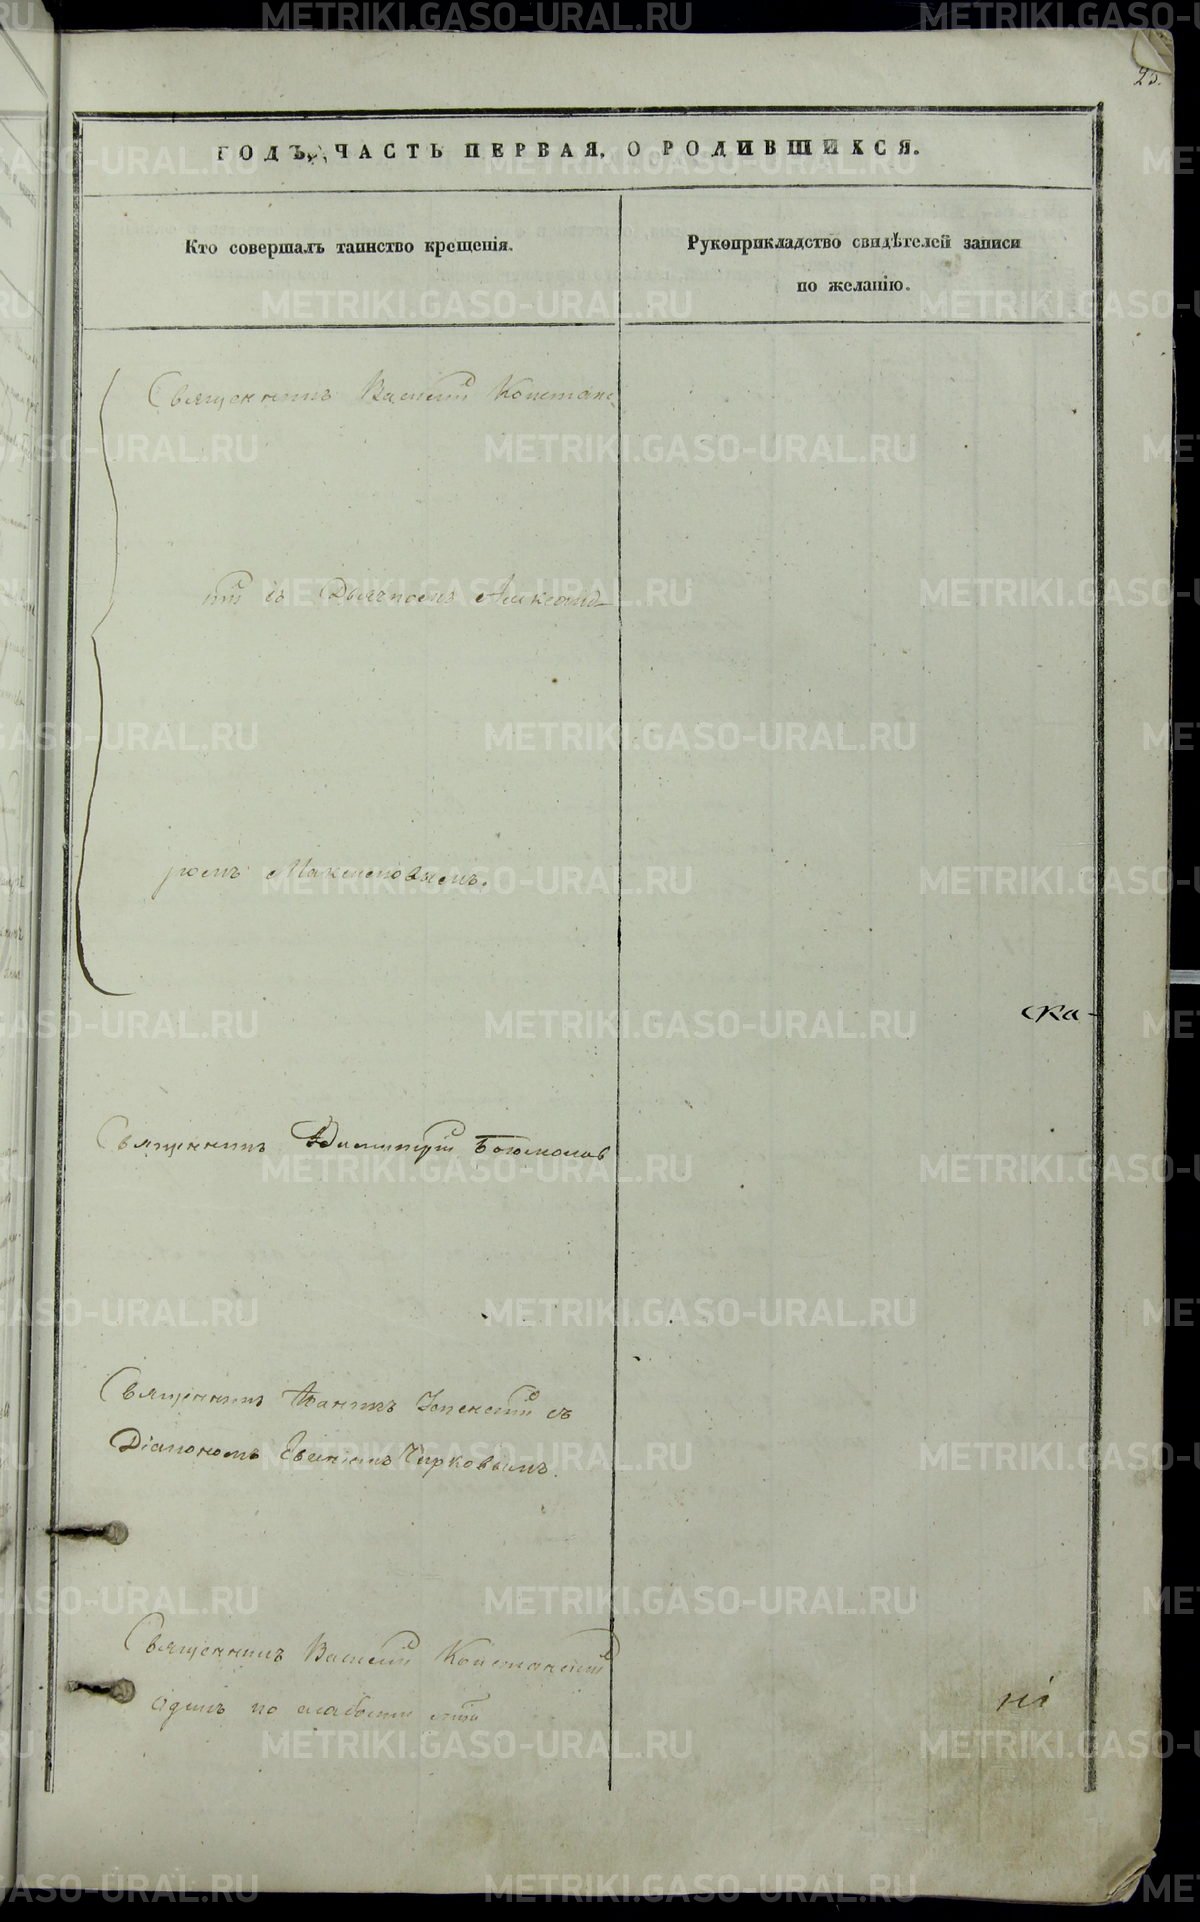 25.
ГОДЪ, ЧАСТЬ ПЕРВАЯ, О РОДИВШИХСЯ.
Кто совершалъ таинство крещенія.
Рукоприкладство свидѣтелей записи
по желанію.
Священникъ Василій Констанс
кій съ Дьячкомъ Александ-
ромъ Максимовымъ.
Ка-
Священникъ Димитрій Богомолов
Священникъ Іоаннъ Успенскій съ
Діакономъ Евгеніемъ Чирковымъ.
Священникъ Василій Констанскій
одинъ по слабости
ні
METRIKI.GASO-URAL.RU